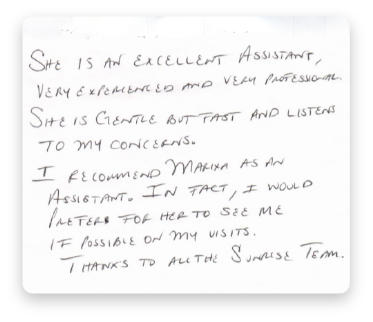 She is an excellent assistant,
very experienced and very professional.
She is gentle but fast and listens
to my concerns.
I recommend Marixa as an
assistant. In fact, I would
prefers for her to see me
if possible on my visits.
Thanks to all the Sunrise Team.